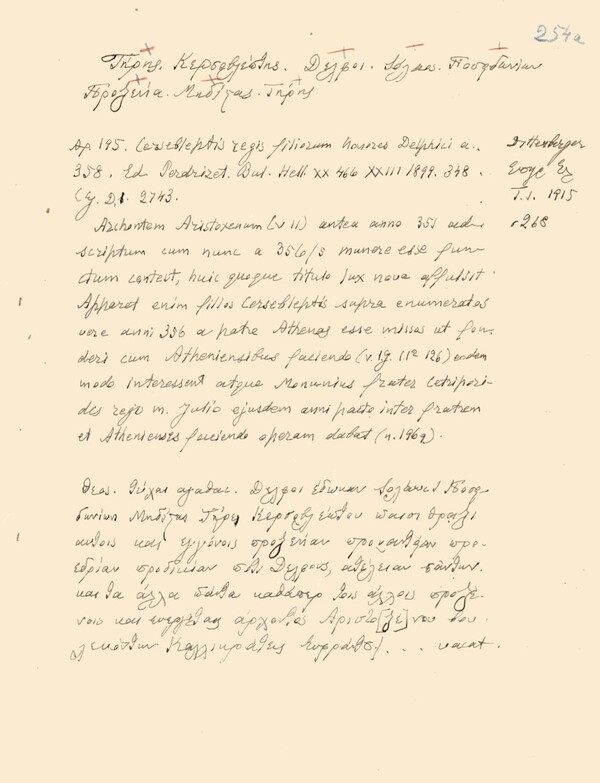 254a
Τήρης. Κερσοβλέπτης. Δελφοι. Ἰόλαος. Ποσηδανίων
Προξενία. Μηδίζας. Τήρης
Ap 195. Cersebleptis regis filiorum honores Delphici a.
358. Ed. Perdrizet. Bul. Hell. XX 466 XXIII 1899. 348.
Cf. D. I. 2743.
Dittenberger
Syge Ex
T. I. 1915
N 268
Archontem Aristoxenum (v 11) antea anno 351 ad-
scriptum cum nunc a 356/5 munere esse func-
tum contest, huic quoque titulo lux nova affulsit.
Apparet enim filios Cersebleptis supra enumeratos
vere anni 356 a patre Athenas esse missos ut foe-
deri cum Atheniensibus faciendo (v. IG II² 126) eodem
modo interessent atque Monunius frater Cetripori-
dis regis m. Julio ejusdem anni pacto inter fratrem
et Athenienses faciendo operam dabat (n. 196q).
Θεος. Τύχαι αγαθαι. Δελφοι έδωκαν Ιολαωι Ποση-
δανίωνι Μηδίζαι Τήρει Κερσοβλέπτου παισι Θραξι
αυτοις και εγγόνοις προξενίαν προμαντηίαν προ-
εδρίαν προδικίαν ποτι Δελφους, ατέλειαν πάντων
και τα άλλα πάντα καθάπερ τοις άλλοις προξέ-
νοις και ευεργέταις άρχοντος Αριστο[ξέ]νου βου-
λευόντων Καλλικράτεις Ευφράντ[. . . vacat.